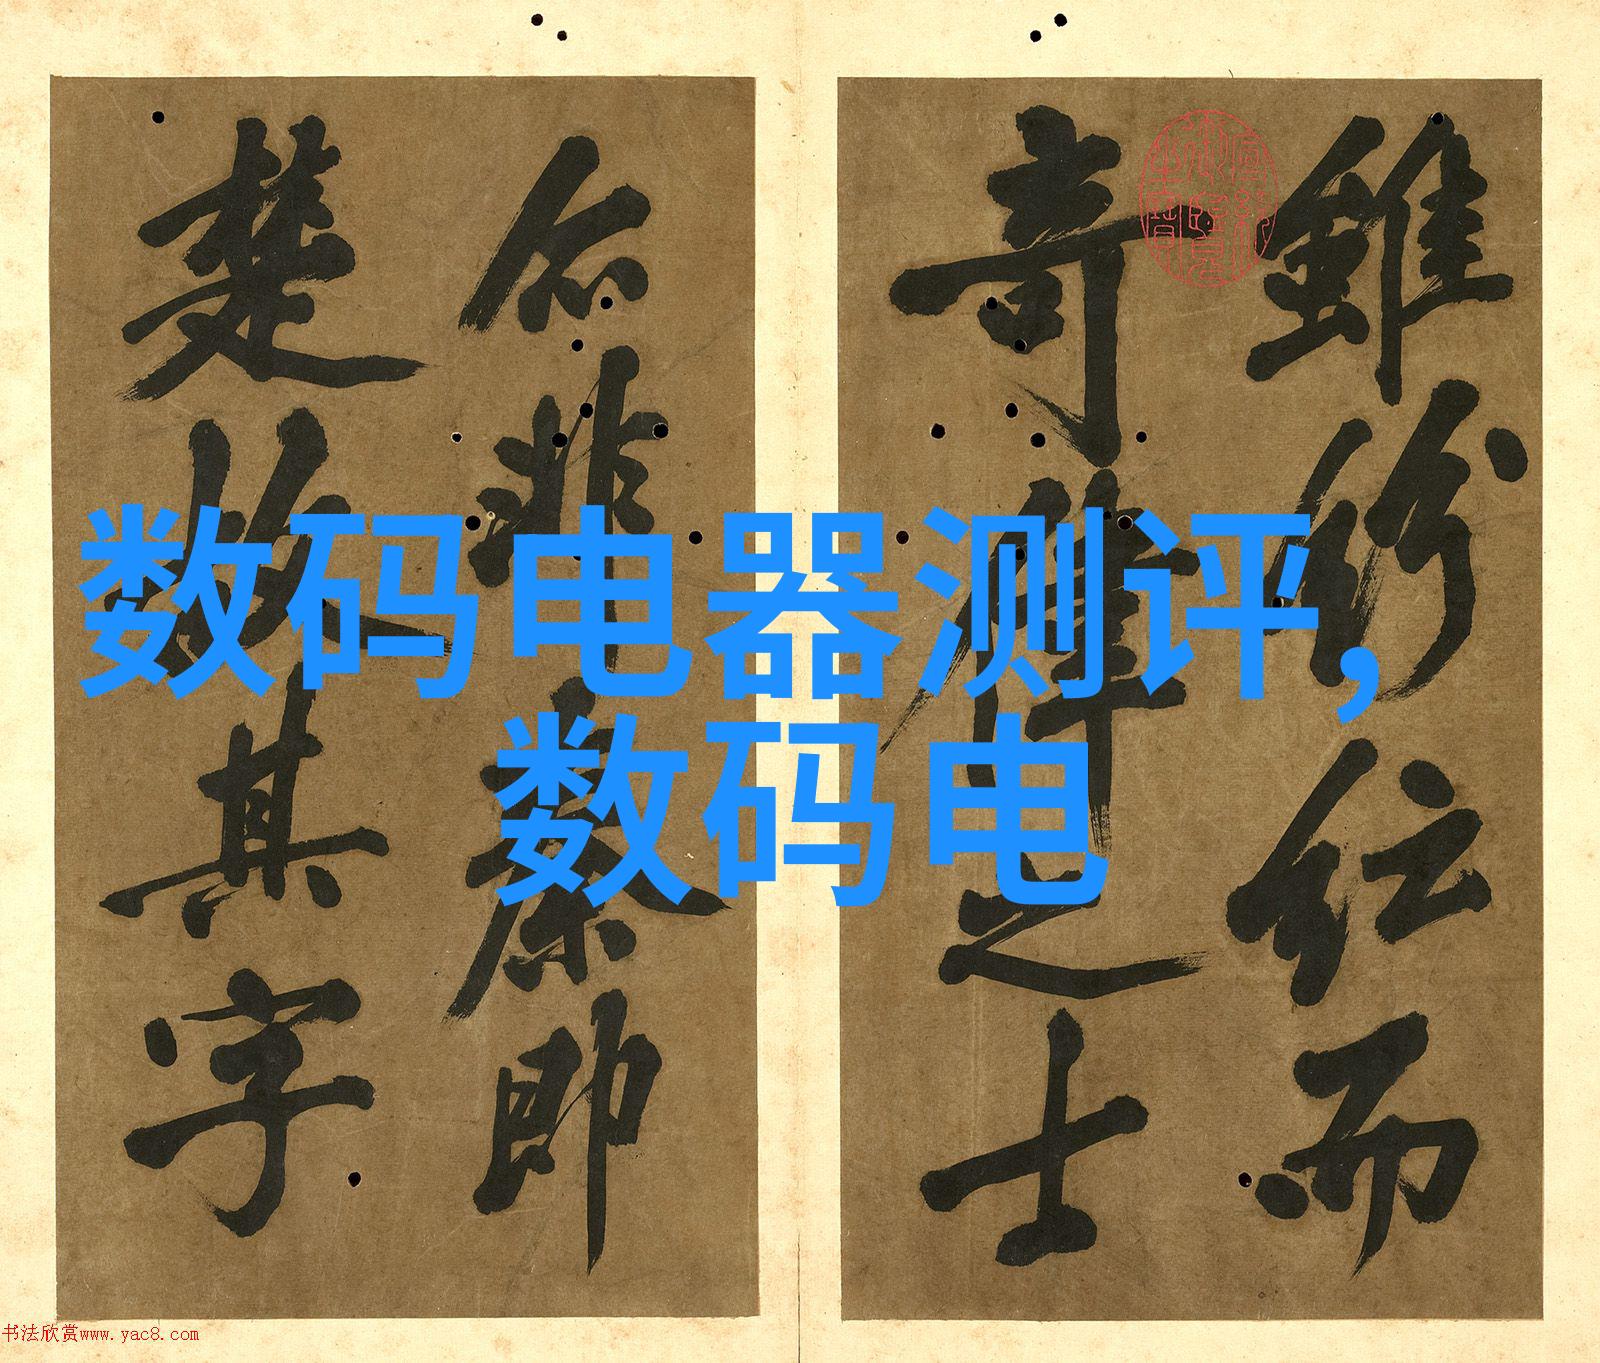 雖紛紜而
奇偉之士
非秦即
楚故其字
数码电器测评，
数码电
书法欣赏www.yac8.com